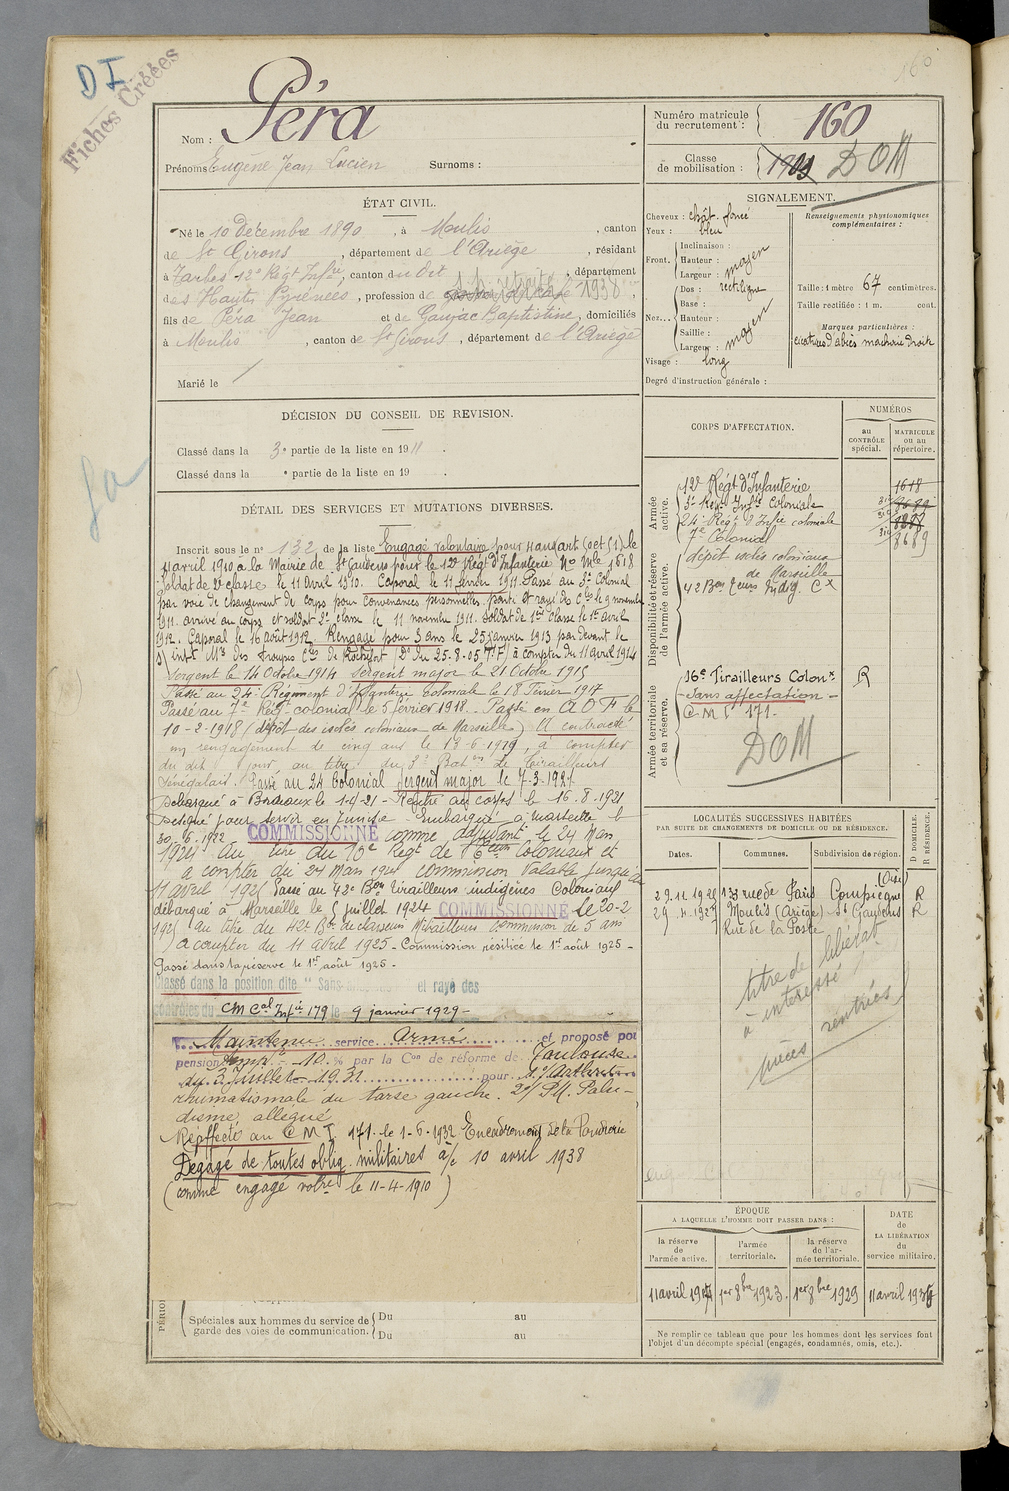 DI
Fiches Créées
160
Nom : Péra
Prénoms Eugène Jean Lucien Surnoms :
Numéro matricule du recrutement : 160
Classe de mobilisation : 1909 DOM
ÉTAT CIVIL.
Né le 10 Décembre 1890, à Moulis, canton
de St Girons, département de l'Ariège, résidant
à Tarbes 12e Régt Infie, canton du dit, département
des Htes Pyrénées, profession de 1938,
fils de Péra Jean et de Gaujac Baptistine, domiciliés
à Moulis, canton de St Girons, département de l'Ariège
Marié le
SIGNALEMENT.
Cheveux : chât. foncé
Yeux : bleu
Front. Inclinaison :
Hauteur : moyen
Largeur :
Nez... Dos : rectiligne
Base :
Hauteur : moyen
Saillie :
Largeur :
Visage : long
Renseignements physionomiques complémentaires :
Taille : 1 mètre 67 centimètres.
Taille rectifiée : 1 m. cent.
Marques particulières :
cicatrice d'abcès machoire droite
Degré d'instruction générale :
DÉCISION DU CONSEIL DE REVISION.
Classé dans la 3e partie de la liste en 1911.
Classé dans la e partie de la liste en 19 .
DÉTAIL DES SERVICES ET MUTATIONS DIVERSES.
Inscrit sous le n° 132 de la liste Engagé volontaire pour 4 ans le
11 avril 1910 à la Mairie de St Gaudens pour le 12e Régt d'Infanterie No Mle 1618
Soldat de 2e classe le 11 Avril 1910. Caporal le 11 février 1911. Passé au 3e Colonial
par voie de changement de corps pour convenances personnelles. parti et rayé des Cles le 9 novembre
1911. arrivé au corps et soldat 2e classe le 11 novembre 1911. Soldat de 1ère classe le 1er avril
1912. Caporal le 16 août 1912. Rengagé pour 3 ans le 25 janvier 1913 par devant le
s/ intt Mre des Troupes Cles de Rochefort (Dt du 25-8-05) à compter du 11 avril 1914
Sergent le 14 Octobre 1914 Sergent major le 21 Octobre 1915
Passé au 24e Régiment d'Infanterie coloniale le 18 Février 1917
Passé au 7e Régt colonial le 5 février 1918. Passé en AOF le
10-2-1918 (dépôt des isolés coloniaux de Marseille) A contracté
un rengagement de cinq ans le 13-6-1919, à compter
du dit jour au titre du 3e Baton de Tirailleurs
Sénégalais. Passé au 24 Colonial Sergent major le 7-3-1921
Débarqué à Bordeaux le 1-4-21 - Rentré au corps le 16.8.1921
Désigné pour servir en Tunisie Embarqué à Marseille le
30.6.1922 COMMISSIONNÉ comme adjudant le 24 Mars
1924 au titre du 10e Régt de Coloniaux et
à compter du 24 Mars 1924 commission valable jusqu'au
11 avril 1925 Passé au 42e Bon Tirailleurs indigènes Coloniaux
débarqué à Marseille le 5 juillet 1924 COMMISSIONNÉ le 20-2
1925 au titre du 42e Bon de Mitrailleurs commission de 5 ans
à compter du 11 avril 1925 - Commission résiliée le 1er août 1925 -
Passé dans la réserve le 1er août 1925 -
Classé dans la position dite " Sans et rayé des
contrôles du CM Cal Infie 179 le 9 janvier 1929 -
Maintenu service Armé et proposé pour
pension temp. 10 % par la Con de réforme de Toulouse
du 3 Juillet 1931 pour 1°/
rhumatismale du tarse gauche. 2°/ Palu-
disme allégué
Réaffecté au C M I 171. le 1-6-1932 Encadrement de la Poudrerie
Dégagé de toutes oblig. militaires à/c 10 avril 1938
(comme engagé votre le 11-4-1910)
PÉRIO
Spéciales aux hommes du service de garde des voies de communication. Du au
Du au
CORPS D'AFFECTATION.
NUMÉROS
au CONTRÔLE spécial.
MATRICULE ou au répertoire.
Armée active.
12e Régt d'Infanterie 1618
3e Régt Infie Coloniale
24e Régt d'Infie coloniale
7e Colonial 8689
dépôt isolés coloniaux
de Marseille
42 Bon Tirrs Indig. Cx
Disponibilité et réserve de l'armée active.
Armée territoriale et sa réserve.
16e Tirailleurs Colonx R
- Sans affectation -
C M I 171 -
DOM
LOCALITÉS SUCCESSIVES HABITÉES
PAR SUITE DE CHANGEMENTS DE DOMICILE OU DE RÉSIDENCE.
Dates.
Communes.
Subdivision de région.
D DOMICILE.
R RÉSIDENCE.
29.11.1926 133 rue de Paris Compiègne (Oise) R
29.4.1927 Moulis (Ariège) St Gaudens R
Rue de la Poste
titre de libérat.
à intéressé
pièces rentrées
ÉPOQUE
A LAQUELLE L'HOMME DOIT PASSER DANS :
la réserve de l'armée active.
l'armée territoriale.
la réserve de l'armée territoriale.
DATE de LA LIBÉRATION du service militaire.
11 avril 1914
1er 8bre 1923.
1er 8bre 1929
11 avril 1935
Ne remplir ce tableau que pour les hommes dont les services font
l'objet d'un décompte spécial (engagés, condamnés, omis, etc.).